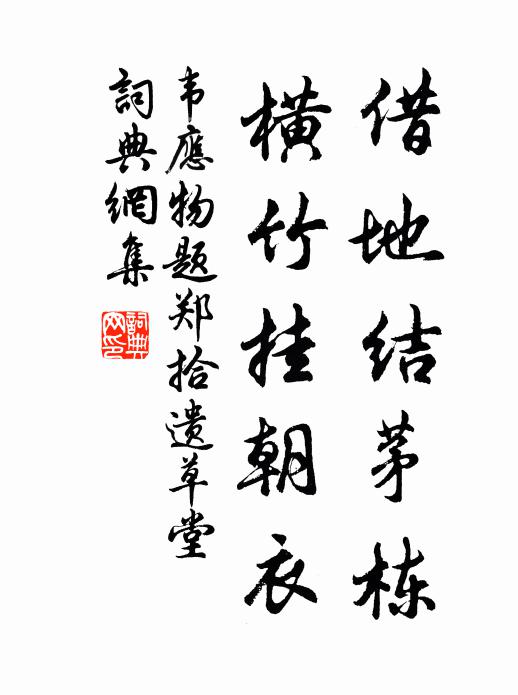 借地结茅栋
横竹挂朝衣
韦應物题郑拾遗草堂
詞典網集
詞典网印